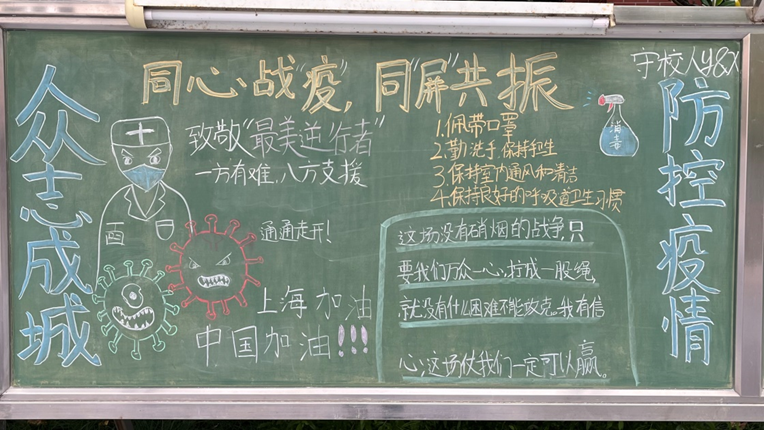 众志成城
同心战"疫",同"屏"共振
守校人y&x
致敬"最美逆行者"
一方有难,八方支援
通通走开!
上海加油
中国加油!!!
1.佩带口罩
2.勤洗手,保持卫生
3.保持室内通风和清洁
4.保持良好的呼吸道卫生习惯
消毒
这场没有硝烟的战争,只
要我们万众一心,拧成一股绳,
就没有什么困难不能攻克。我有信
心,这场仗我们一定可以赢。
防控疫情